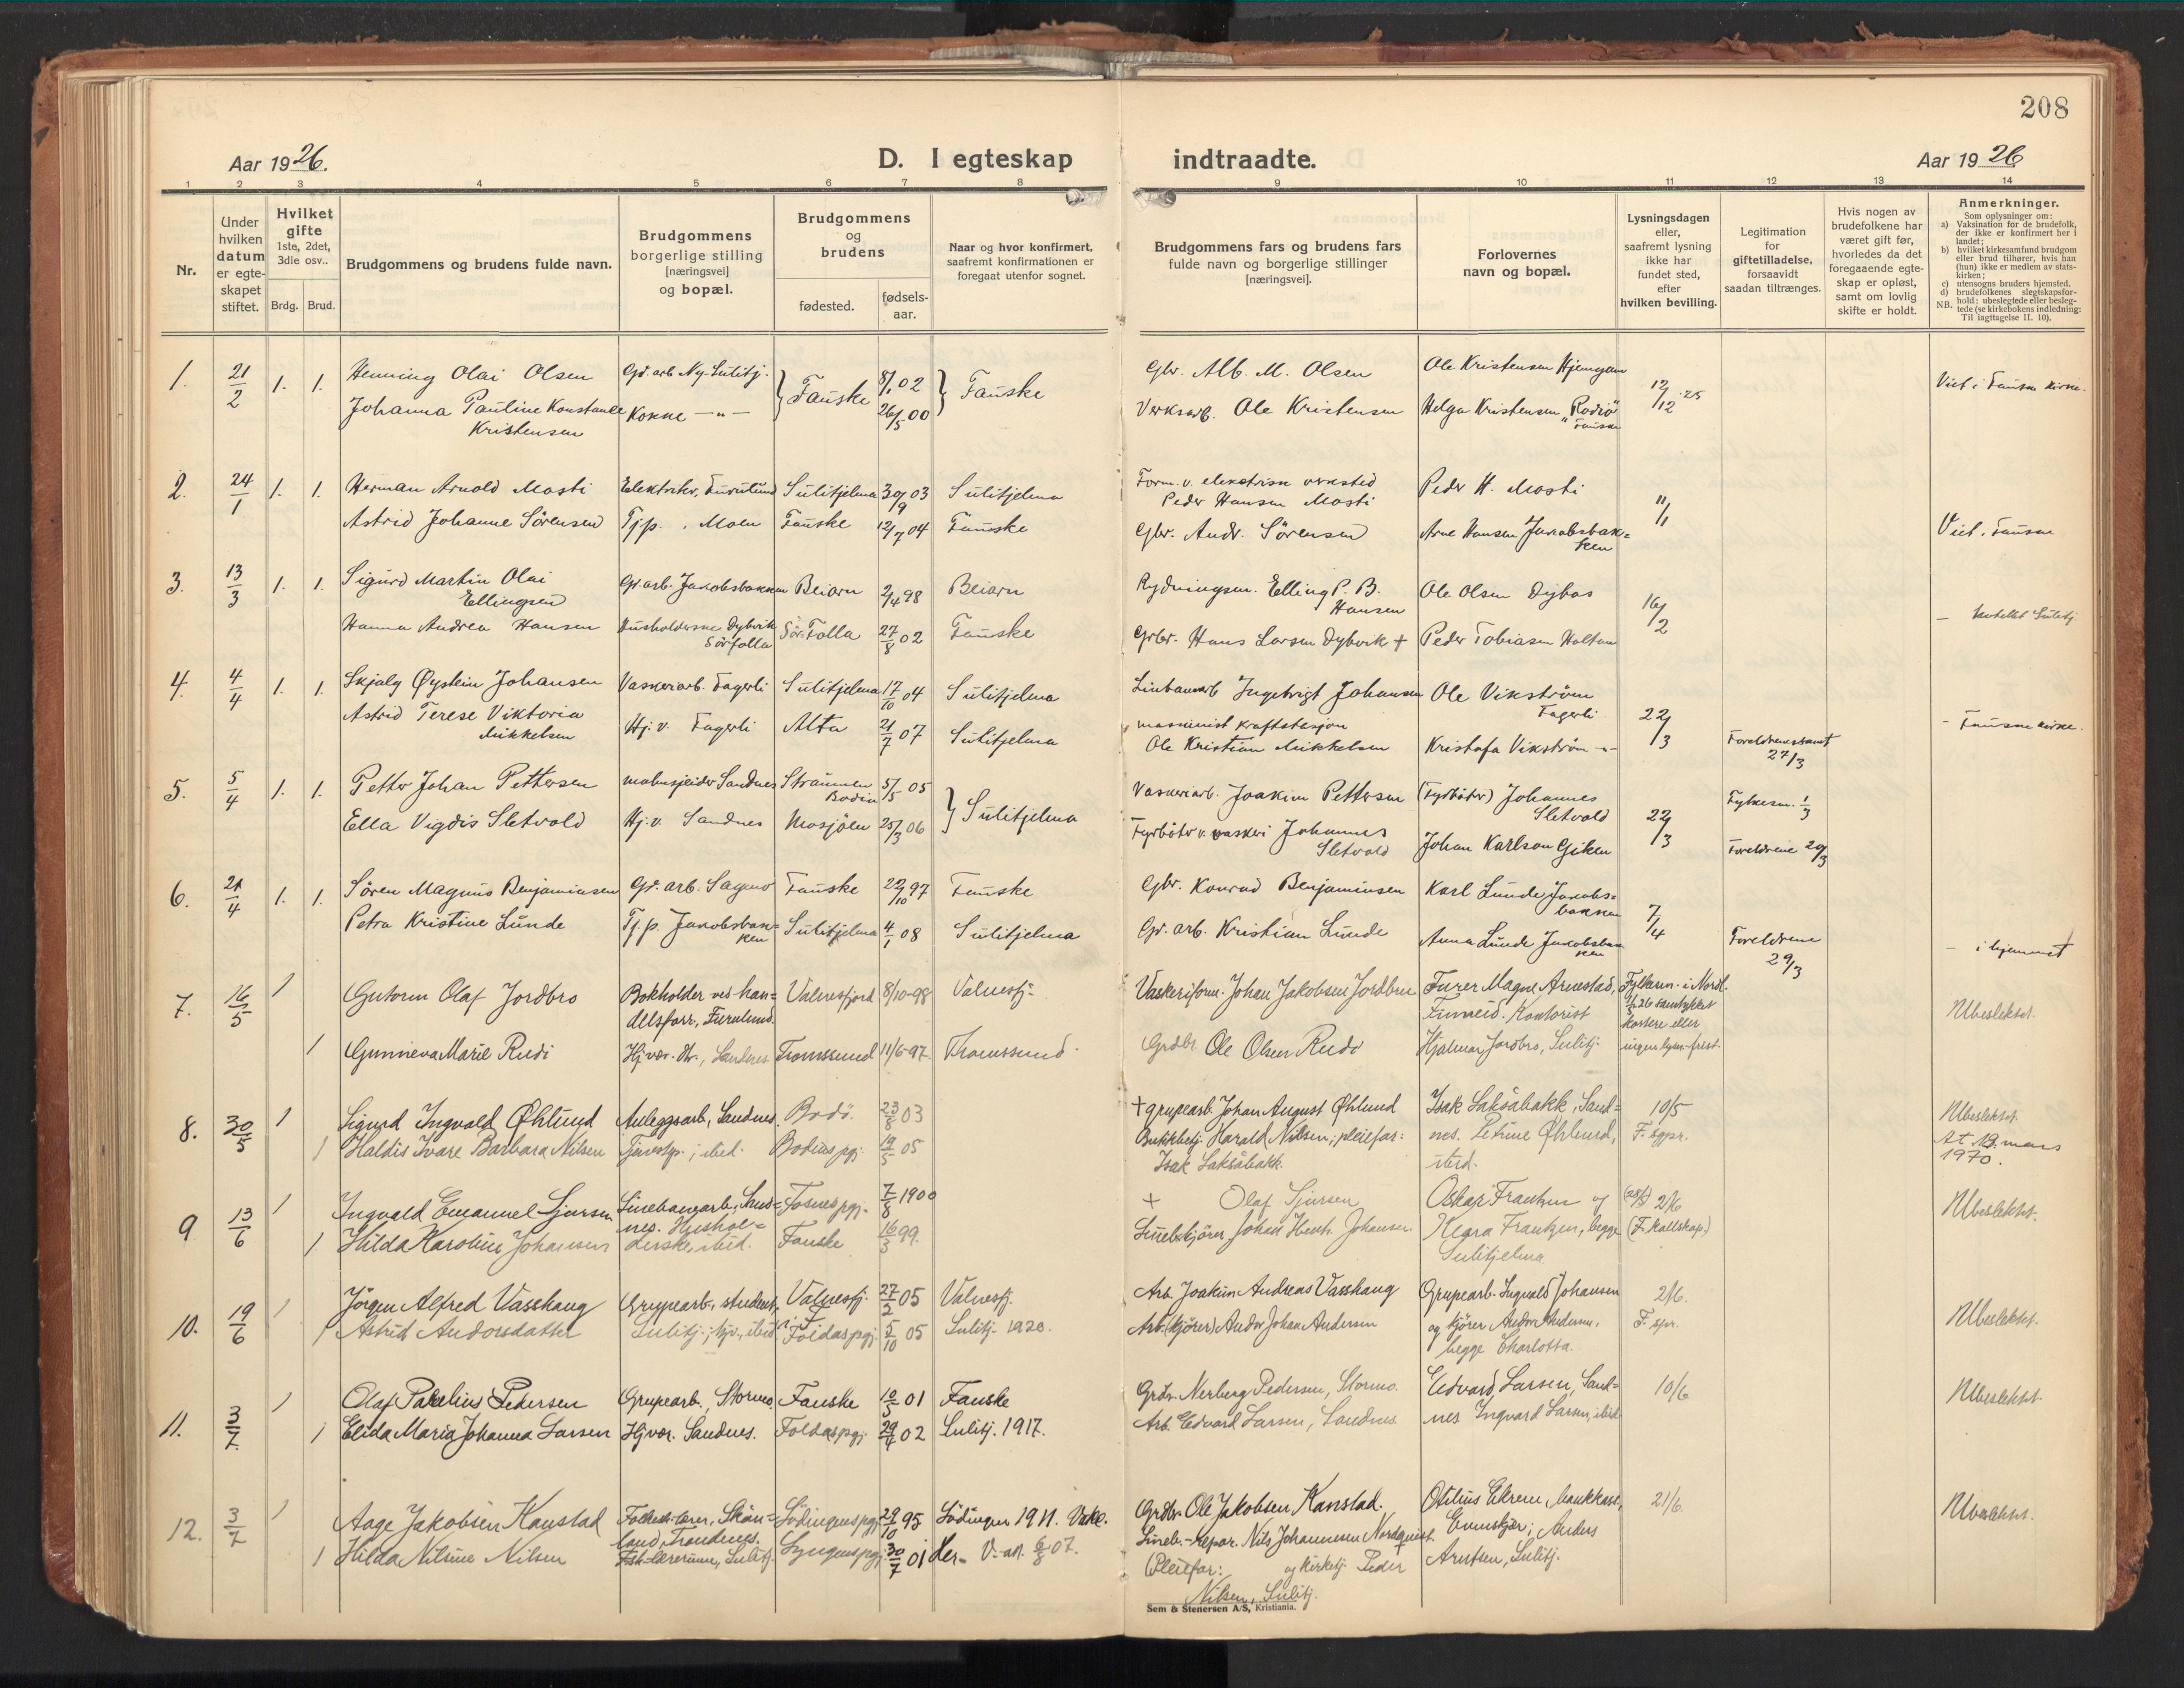 208
Aar 1926.
D. I egteskap indtraadte.
Aar 1926
1 2 3 4 5 6 7 8 9 10 11 12 13 14
Nr.
Under hvilken datum er egteskapet stiftet.
Hvilket gifte 1ste, 2det, 3die osv..
Brdg. Brud.
Brudgommens og brudens fulde navn.
Brudgommens borgerlige stilling [næringsvei] og bopæl.
Brudgommens og brudens
fødested. fødselsaar.
Naar og hvor konfirmert, saafremt konfirmationen er foregaat utenfor sognet.
Brudgommens fars og brudens fars fulde navn og borgerlige stillinger [næringsvei].
Forlovernes navn og bopæl.
Lysningsdagen eller, saafremt lysning ikke har fundet sted, efter hvilken bevilling.
Legitimation for giftetilladelse, forsaavidt saadan tiltrænges.
Hvis nogen av brudefolkene har været gift før, hvorledes da det foregaaende egteskap er opløst, samt om lovlig skifte er holdt.
Anmerkninger.
Som oplysninger om:
a) Vaksination for de brudefolk, der ikke er konfirmert her i landet;
b) hvilket kirkesamfund brudgom eller brud tilhører, hvis han (hun) ikke er medlem av statskirken;
c) utensogns bruders hjemsted.
d) brudefolkenes slegtskapsforhold: ubeslegtede eller beslegtede (se kirkebokens indledning:
NB. Til iagttagelse II. 10).
1. 21/2 1. 1. Henning Olai Olsen Gr. arb Ny-Sulitj. } Fauske 8/1 02 } Fauske Gbr. Alb. M. Olsen Ole Kristensen 12/12-25 Viet i Fauske kirke.
Johanna Pauline Konstanse Kristensen Kokke —"— 26/5 00 Verksarb. Ole Kristensen Helga Kristensen "Rodiö" Fauske
2. 24/1 1. 1. Herman Arnold Mosti Elektriker, Furulund Sulitjelma 30/9 03 Sulitjelma Form. v. elektriske verksted Peder Hansen Mosti Peder H. Mosti 11/1
Astrid Johanne Sörensen Tj.p. Moen Fauske 12/7 04 Fauske Gbr. Andr. Sörensen Arne Hansen Jakobsbakken Viet i Fauske
3. 13/3 1. 1. Sigurd Martin Olai Ellingsen Gr. arb. Jakobsbakken Beiarn 2/4 98 Beiarn Rydningsm. Elling P. B. Hansen Ole Olsen Dybos 16/2
Hanna Andrea Hansen Husholderske Dybvik Sörfolla Sör-Folla 27/8 02 Fauske Gbr. Hans Larsen Dybvik + Peder Tobiasen — hotellet Sulitj.
4. 4/4 1. 1. Skjalg Øystein Johansen Vaskeriarb. Fagerli Sulitjelma 17/10 04 Sulitjelma Linbanearb Ingebrigt Johansen Ole Vikström Fagerli 22/3
Astrid Terese Viktoria Mikkelsen Hj. v. Fagerli Alta 21/7 07 Sulitjelma maskinist kraftstasjon Ole Kristian Mikkelsen Kristofa Vikström —"— Foreldrenes samt 27/3 - Fauske kirke.
5. 5/4 1. 1. Petter Johan Pettersen malmskeider Sandnes Straumen Bodin 5/5 05 } Sulitjelma Vaskeriarb. Joakim Pettersen (Fyrböter) Johannes Sletvold 22/3 Fylkesm. 1/3
Ella Vigdis Sletvold Hj. v. Sandnes Mosjöen 25/3 06 Fyrböter v. vaskeri Johannes Sletvold Johan Karlson Giken Foreldrene 20/3
6. 21/4 1. 1. Sören Magnus Benjaminsen Gr. arb. Sagmo Fauske 22/10 97 Fauske Gbr. Konrad Benjaminsen Karl Lunde Jakobsbakken 7/4
Petra Kristine Lunde Tj. p. Jakobsbakken Sulitjelma 4/1 08 Sulitjelma Gr. arb. Kristian Lunde Anna Lunde Jakobsbakken Foreldrene 29/3 — i hjemmet
7. 16/5 1 Gutorm Olaf Jordbro Bokholder ved handelsforr., Furulund. Valnesfjord 8/10-98 Valnesfj. Vaskeriform. Johan Jakobsen Jordbru Furer Magne Arnestad, Finneid. Kontorist Fylkesm. i Nordl. 1/5 26 samtykket kortere eller ingen lysn.-frist. Ubeslektet.
1 Gunneva Marie Rudi Hj.vær. dtr., Sandnes Tromssund 11/6-97. Tromssund. Grdbr. Ole Olsen Rudi Hjalmar Jordbro, Sulitj.
8. 30/5 1 Sigurd Ingvald Øhlund Anleggsarb., Sandnes. Bodö. 23/8 03 + grupearb. Johan August Øhlund Isak Laksåbakk, Sandnes. Petrine Øhlund, ibid. 10/5 F. sgpr. Ubeslektet.
1 Haldis Ivare Barbara Nilsen Tjenestp., ibid. Bodins pgj. 19/5 05 Butikkbetj. Harald Nilsen; pleiefar: Isak Laksåbakk. At 13. mars 1970.
9 13/6 1 Ingvald Emanuel Sjursen Linebanearb., Sandnes. Fosnes pgj. 7/8 1900 + Olaf Sjursen Oskar Frantzen og (28/5) 2/6 Ubeslektet.
1 Hilda Karoline Johansen Husholderske, ibid. Fauske 16/3 99. Johan Henr. Johansen. Kegra Frantzen, begge Sulitjelma (F. kallskap.)
10. 19/6 1 Jörgen Alfred Vasshaug Grupearb., student, Valnesfj. 27/2 05 Valnesfj. Arb. Joakim Andreas Vasshaug Grupearb. Ingvald Johansen 2/6. Ubeslektet.
1 Astrid Andorsdatter Sulitj.; hjv., ibid. Foldas pgj. 5/10 05 Sulitj. 1920. Arb. (kjörer) Andor Johan Andersen og kjörer Andor Andersen, begge Charlotta. F. spr.
11. 3/7. 1 Olaf Parelius Pedersen Grupearb., Stormo. Fauske 10/5 01 Fauske Grdbr. Nerberg Pedersen, Stormo. Edvard Larsen, Sandnes 10/6 Ubeslektet.
1 Elida Maria Johanna Larsen Hjvær. Sandnes. Foldas pgj. 29/4 02 Sulitj. 1917. Arb. Edvard Larsen, Sandnes Ingvard Larsen, ibid.
12. 3/7 1 Aage Jakobsen Kanstad Folkesk.lærer, Skånland, Trondenes. Lödingens pgj. 29/10 95 Lödingen 1911. Vakc. Grdbr. Ole Jakobsen Kanstad. Otilius Ekrem, bankkass., Evenskjer; Anders Arntsen, Sulitj. 21/6. Ubeslektet.
1 Hilda Nilsine Nilsen Fsk.-lærerinne, Sulitj. Lyngens pgj. 30/7 01 Her. V. att. 6/8 07. Lineb.-Repar. Nils Johannessen Nordquist. Pleiefar: og kirketj. Peder Nilsen, Sulitj.
Sem & Stenersen A/S, Kristiania.